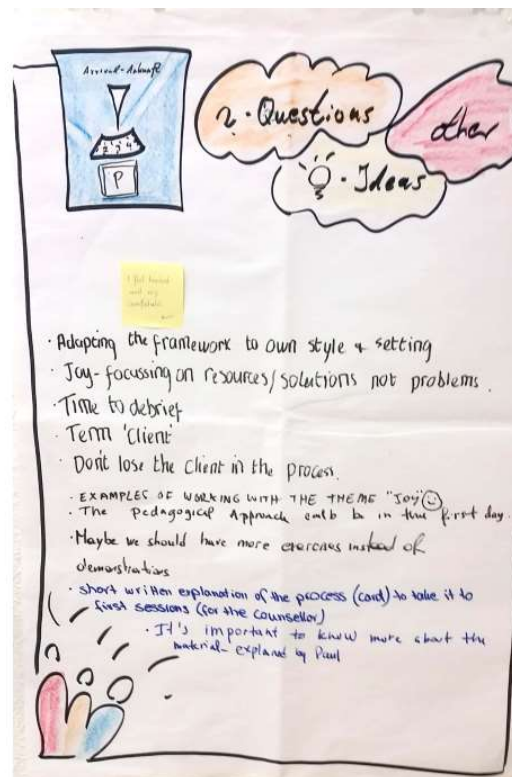 Arrival - Ankunft
1 2 3 4
P
? · Questions
other
· Ideas
I feel
and my
· Adapting the framework to own style + setting
· Joy - focussing on resources/solutions not problems.
· Time to debrief
· Term 'Client'
· Don't lose the Client in the process.
· EXAMPLES OF WORKING WITH THE THEME "JOY"
· The pedagogical Approach be in the first day.
· Maybe we should have more exercises instead of
demonstrations
· short written explanation of the process (card) to take it to
first sessions (for the counsellor)
· It's important to know more about the
material - explaned by Paul